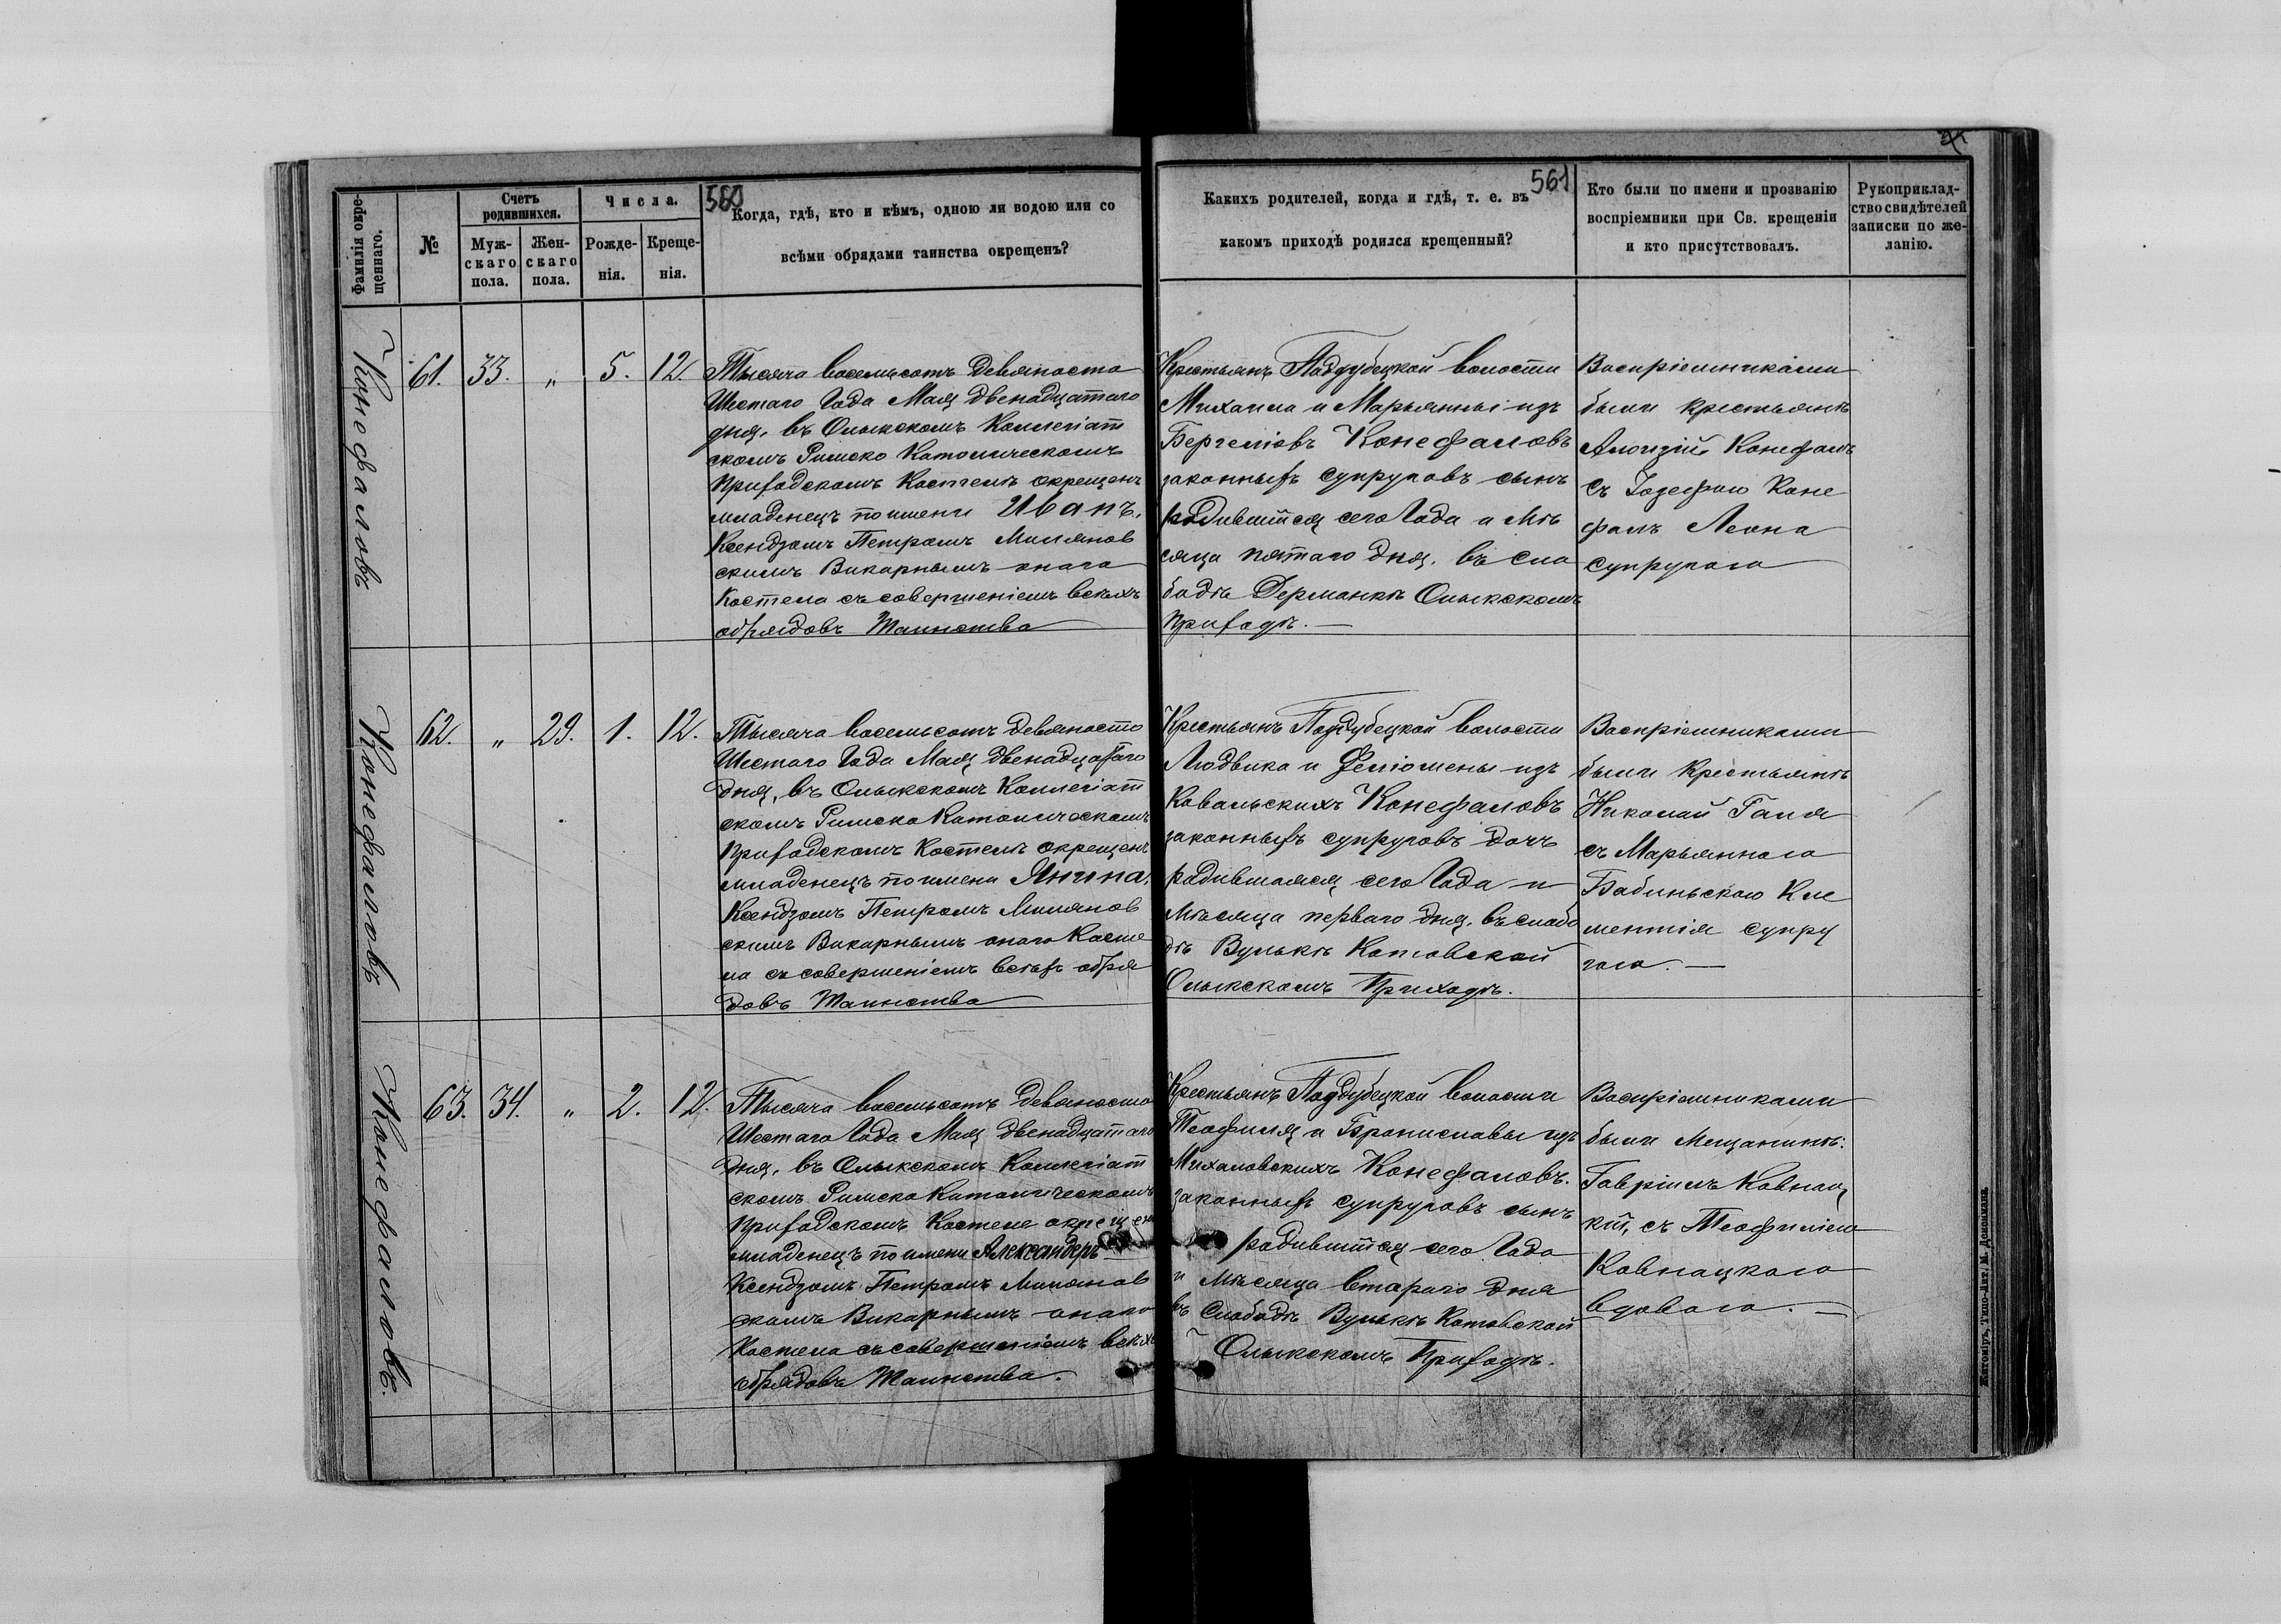 560
561
Фамилія окре-
щеннаго.
№
Счетъ
родившихся.
Муж-
скаго
пола.
Жен-
скаго
пола.
Числа.
Рожде-
нія.
Креще-
нія.
Когда, гдѣ, кто и кѣмъ, одною ли водою или со
всѣми обрядами таинства окрещенъ?
Какихъ родителей, когда и гдѣ, т. е. въ
какомъ приходѣ родился крещенный?
Кто были по имени и прозванію
воспріемники при Св. крещеніи
и кто присутствовалъ.
Рукоприклад-
ство свидѣтелей
записки по же-
ланію.
Конефаловъ
61. 33. „ 5. 12.
Тысяча восемьсотъ девяноста
Шестаго Года Мая двенадцатаго
дня, въ Олыкскомъ Коллегіат
скомъ Римско Католическомъ
Приходскомъ Костелѣ окрещенъ
младенецъ по имени Иванъ,
Ксендзомъ Петромъ Милянов
скимъ Викарнымъ онаго
Костела съ совершеніемъ всѣхъ
обрядовъ Таинства
Крестьянъ Поддубецкой волости
Михаила и Марьянны изъ
Конефаловъ
законныхъ супруговъ сынъ
родившійся сего Года и Мѣ
сяца пятаго дня, въ сло
бодѣ Дерманкѣ Олыкскомъ
Приходѣ. —
Воспріемниками
были крестьянѣ
Алоизій Конефалъ
съ Іозефою Коне
фалъ Леона
супругою
Конефаловъ
62. „ 29. 1. 12.
Тысяча восемьсотъ девяносто
Шестаго Года Мая двенадцатаго
дня, въ Олыкскомъ Коллегіат
скомъ Римско Католическомъ
Приходскомъ Костелѣ окрещенъ
младенецъ по имени Янина,
Ксендзомъ Петромъ Милянов
скимъ Викарнымъ онаго Косте
ла съ совершеніемъ всѣхъ обря
довъ Таинства
Крестьянъ Поддубецкой волости
Людвика и Филіомены изъ
Ковальскихъ Конефаловъ
законныхъ супруговъ дочь
родившаяся сего Года и
Мѣсяца перваго дня, въ слобо
дѣ Вулькѣ Котовской
Олыкскомъ Приходѣ.
Воспріемниками
были Крестьянѣ
Николай Галя
съ Марьянною
Бабиньскою Кле
ментія супру
гою. —
Конефаловъ.
63. 34. „ 2. 12.
Тысяча восемьсотъ девяносто
Шестаго Года Мая двенадцатаго
дня, въ Олыкскомъ Коллегіат
скомъ Римско Католическомъ
Приходскомъ Костеле окрещенъ
младенецъ по имени Александеръ
Ксендзомъ Петромъ Милянов
скимъ Викарнымъ онаго
Костела съ совершеніемъ всѣхъ
обрядовъ Таинства.
Крестьянъ Поддубецкой волости
Теофиля и Брониславы изъ
Михаловскихъ Конефаловъ.
законныхъ супруговъ сынъ
родившійся сего Года
и Мѣсяца втораго дня
въ Слободѣ Вулькѣ Котовской
Олыкскомъ Приходѣ.
Воспріемниками
были Мещанинѣ:
Гавріилъ Ковнац
кій, съ Теофиліею
Ковнацкою
вдовою. —
Житоміръ, Типо-Лит. М. Дененмана.